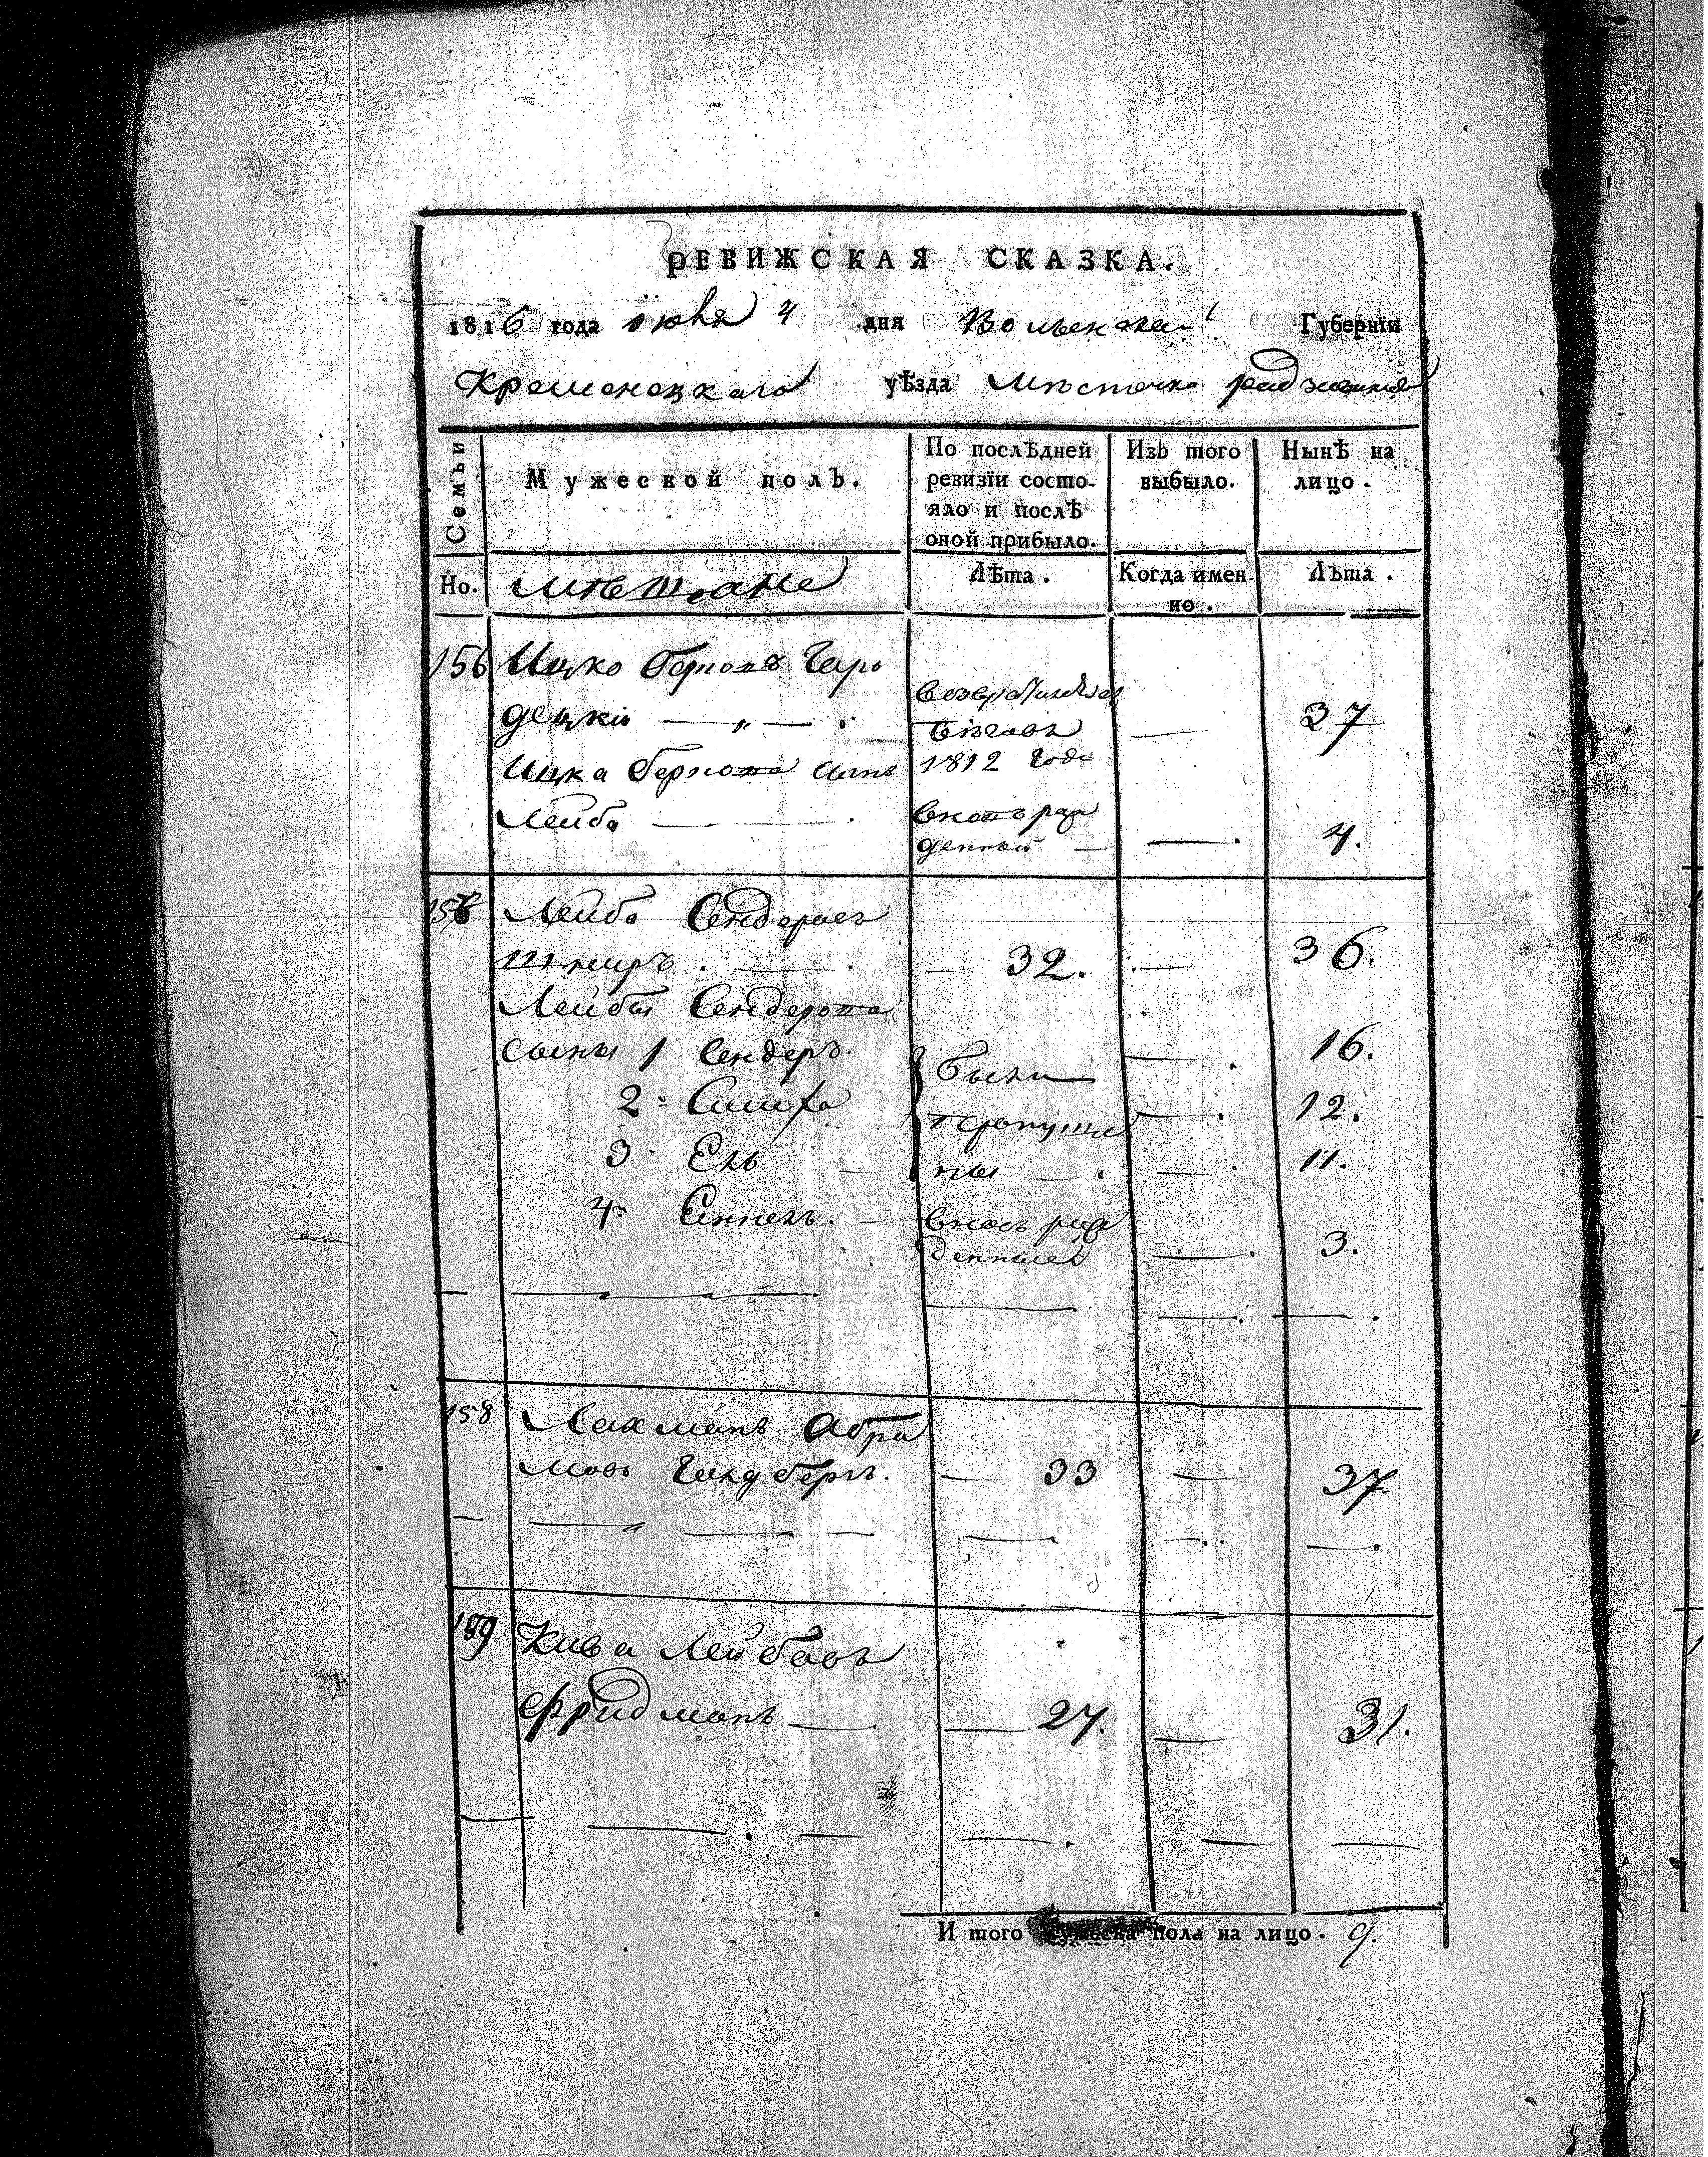 РЕВИЖСКАЯ СКАЗКА.
1816 года июня 4 дня Волынской Губерніи
Кременецкаго уѣзда Мѣстечка радзивилова
Семьи
Мужеской полъ.
По послѣдней ревизіи состо-
яло и послѣ
оной прибыло.
Изъ того
выбыло.
Нынѣ на
лицо.
Но.
мѣщане
Лѣта.
Когда имен-
но.
Лѣта.
156 Ицко Берковъ Горо
децкій — „ — возвратился 
бѣговъ — 37
Ицка Беркова сынъ 1812 года
Лейба — вновь рож
денный — — 4.
157 Лейба Сендеровъ
Шниръ. — 32. — 36.
Лейбы Сендерова
сыны 1 Сендеръ. были — 16.
2 Симха пропуще — 12.
3 Ель — ны — 11.
4 вновь рож
денный — 3.
158 Лахманъ Абра
мовъ Гиндберъ. — 33 — 37.
159 Кива Лейбовъ
Фридманъ — 27. — 31.
И того мужеска пола на лицо. 9.